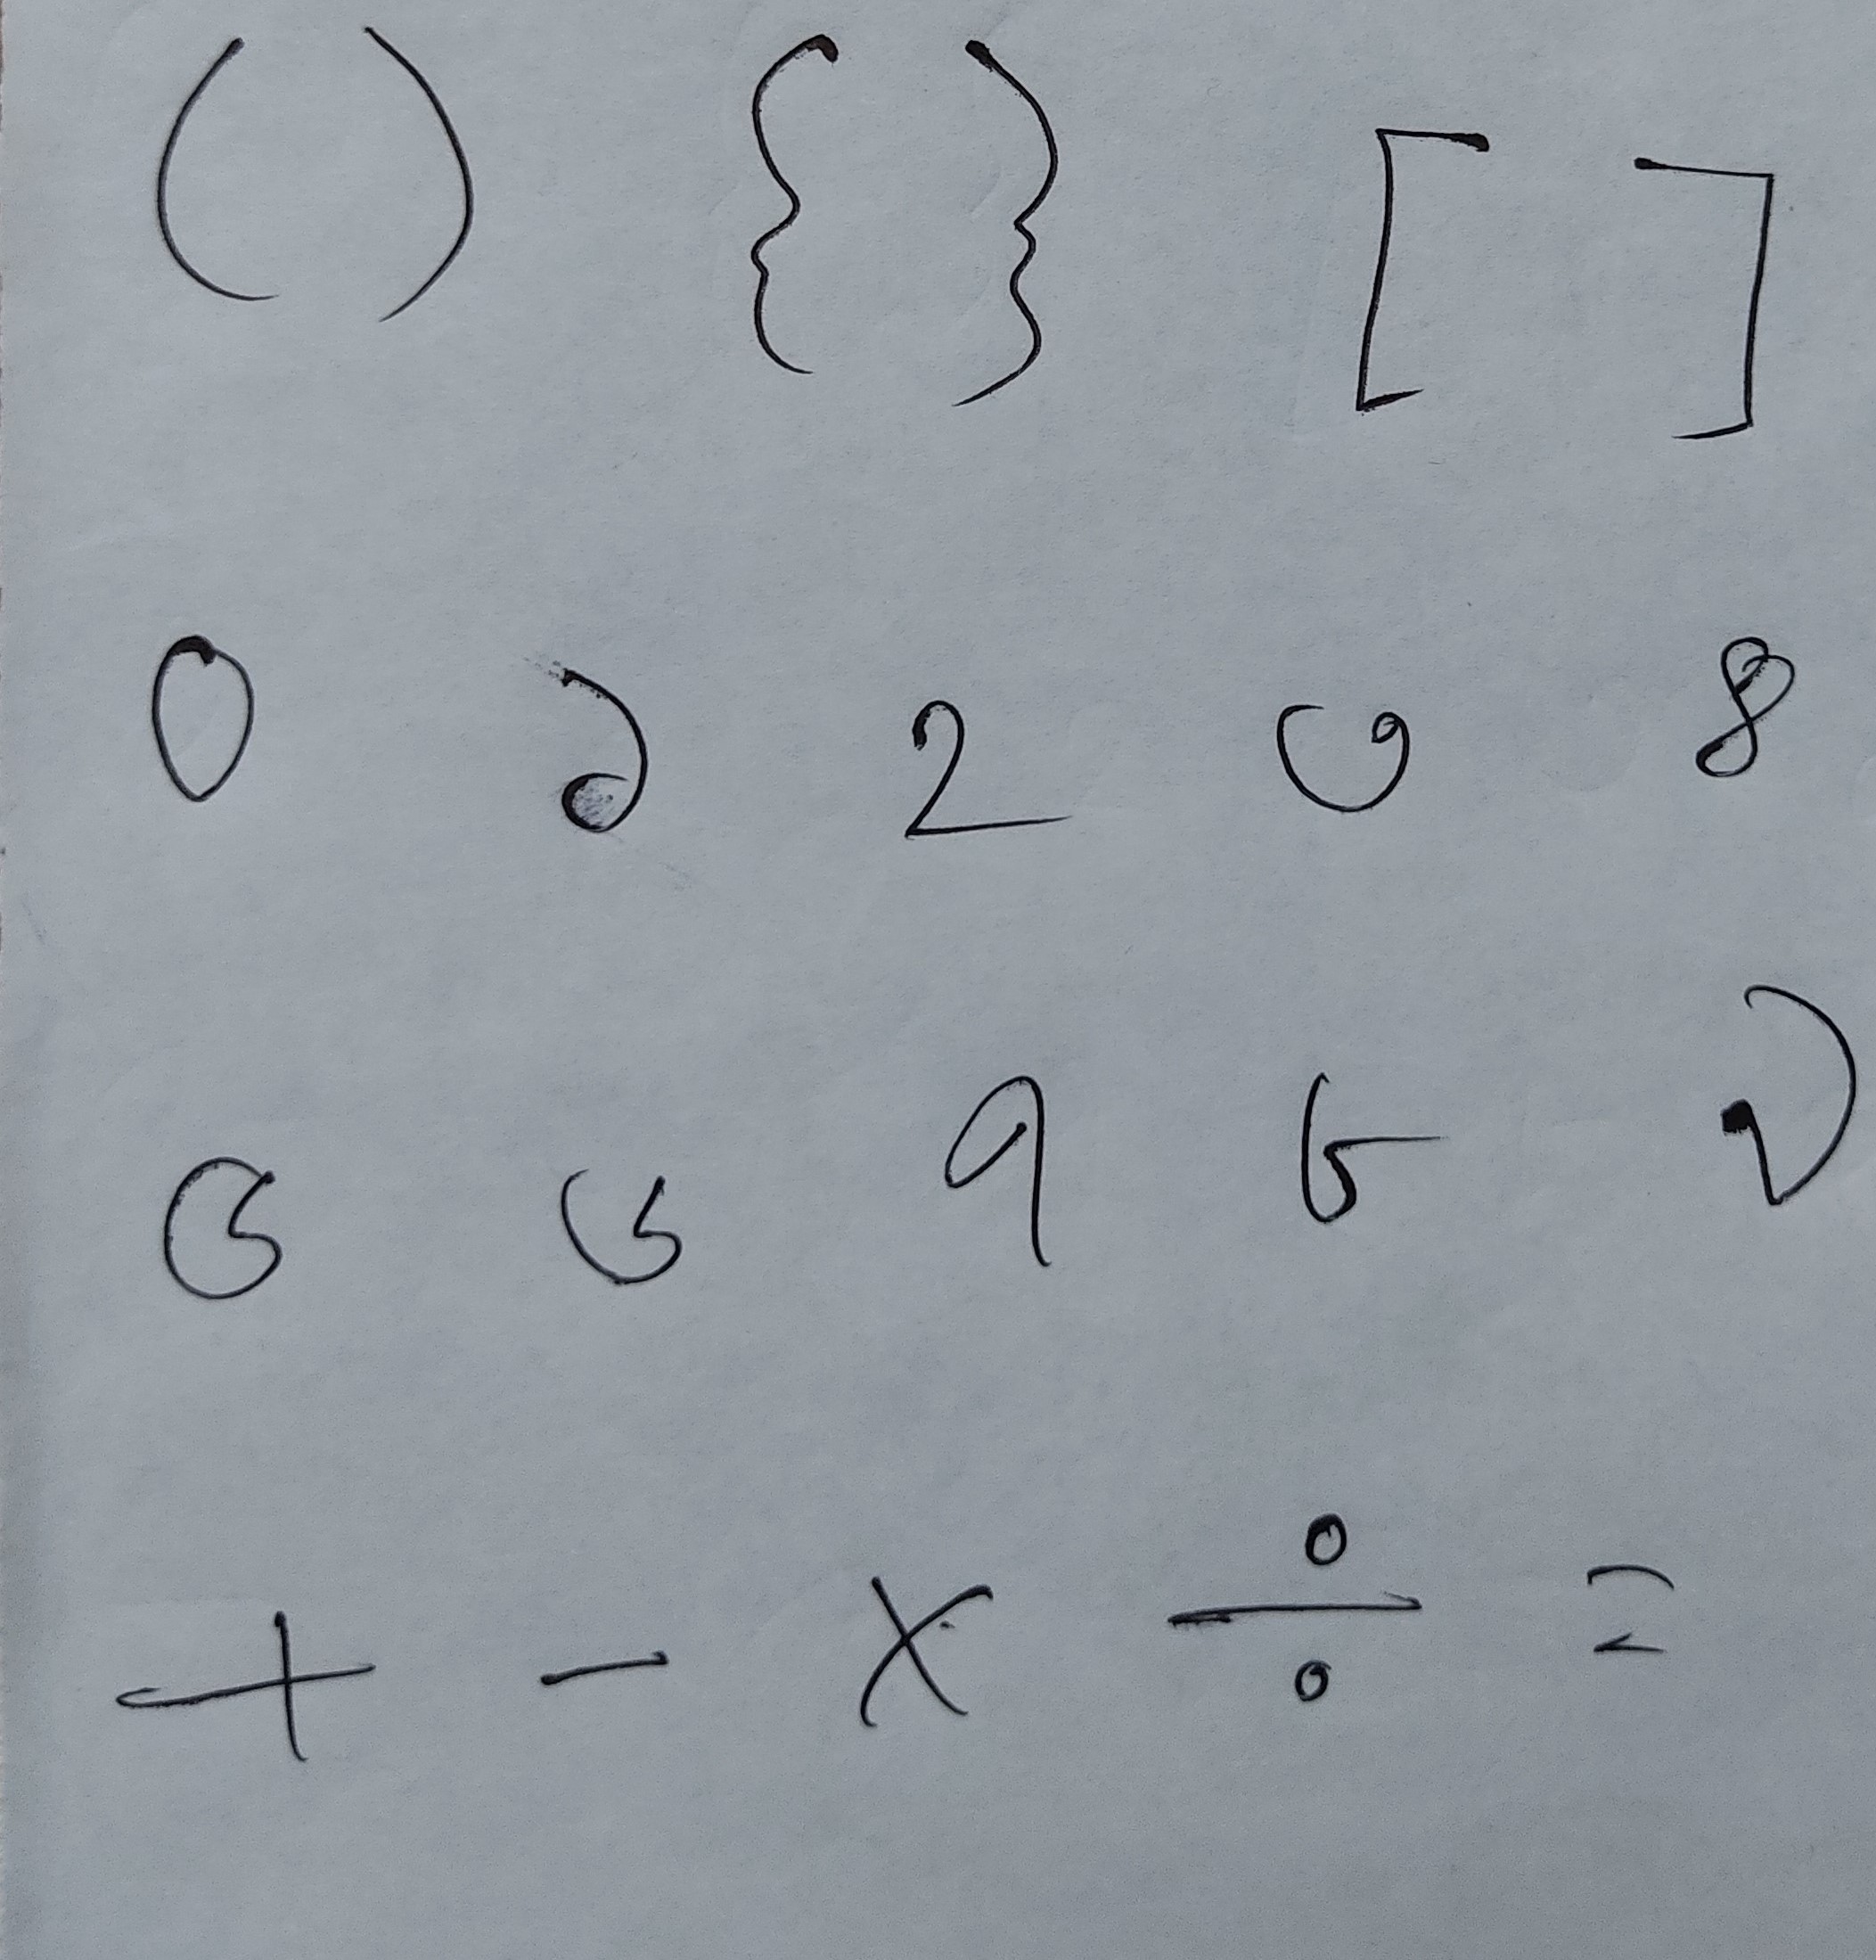 ( ) { } [ ]
০ ১ ২ ৩ ৪
৫ ৬ ৭ ৮ ৯
+ - × ÷ =